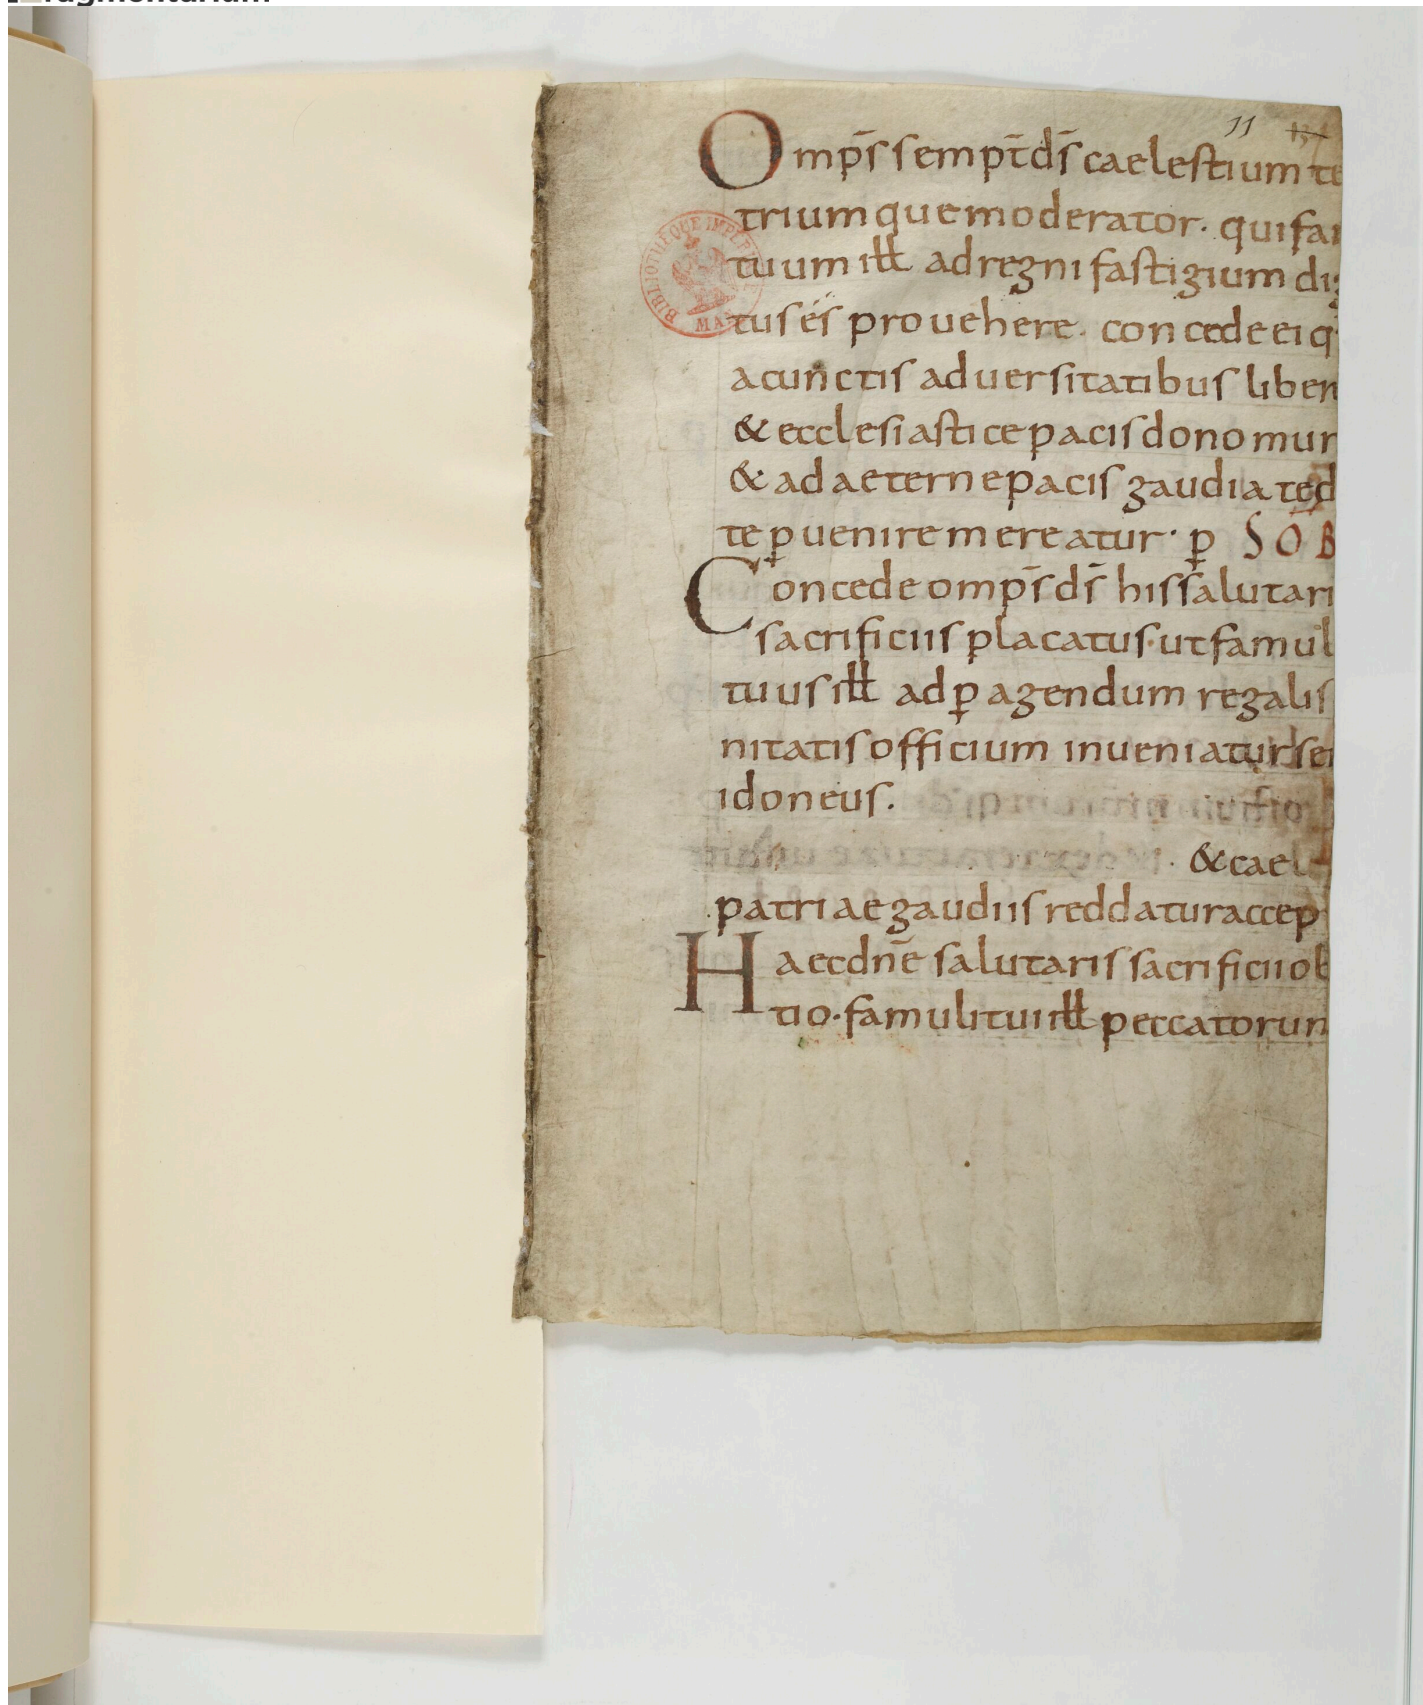 11
Omp̄s sempt̄ d̄s caelestium te
triumque moderator. qui fa
tuum ill ad regni fastigium dig
tus es̄ provehere. concede ei q
a cunctis adversitatibus liber
& ecclesiastice pacis dono mun
& ad aeterne pacis gaudia te d
te ꝑvenire mereatur. ꝑ SOB
Concede omp̄s d̄s his salutari
sacrificiis placatus. ut famul
tuus ill ad ꝑagendum regalis
nitatis officium inveniatur se
idoneus.
. & cael
patriae gaudiis reddatur accep
Haec dn̄e salutaris sacrificii ob
tio. famuli tui ill peccatorum
BIBLIOTHÈQUE IMPÉRIALE MAN